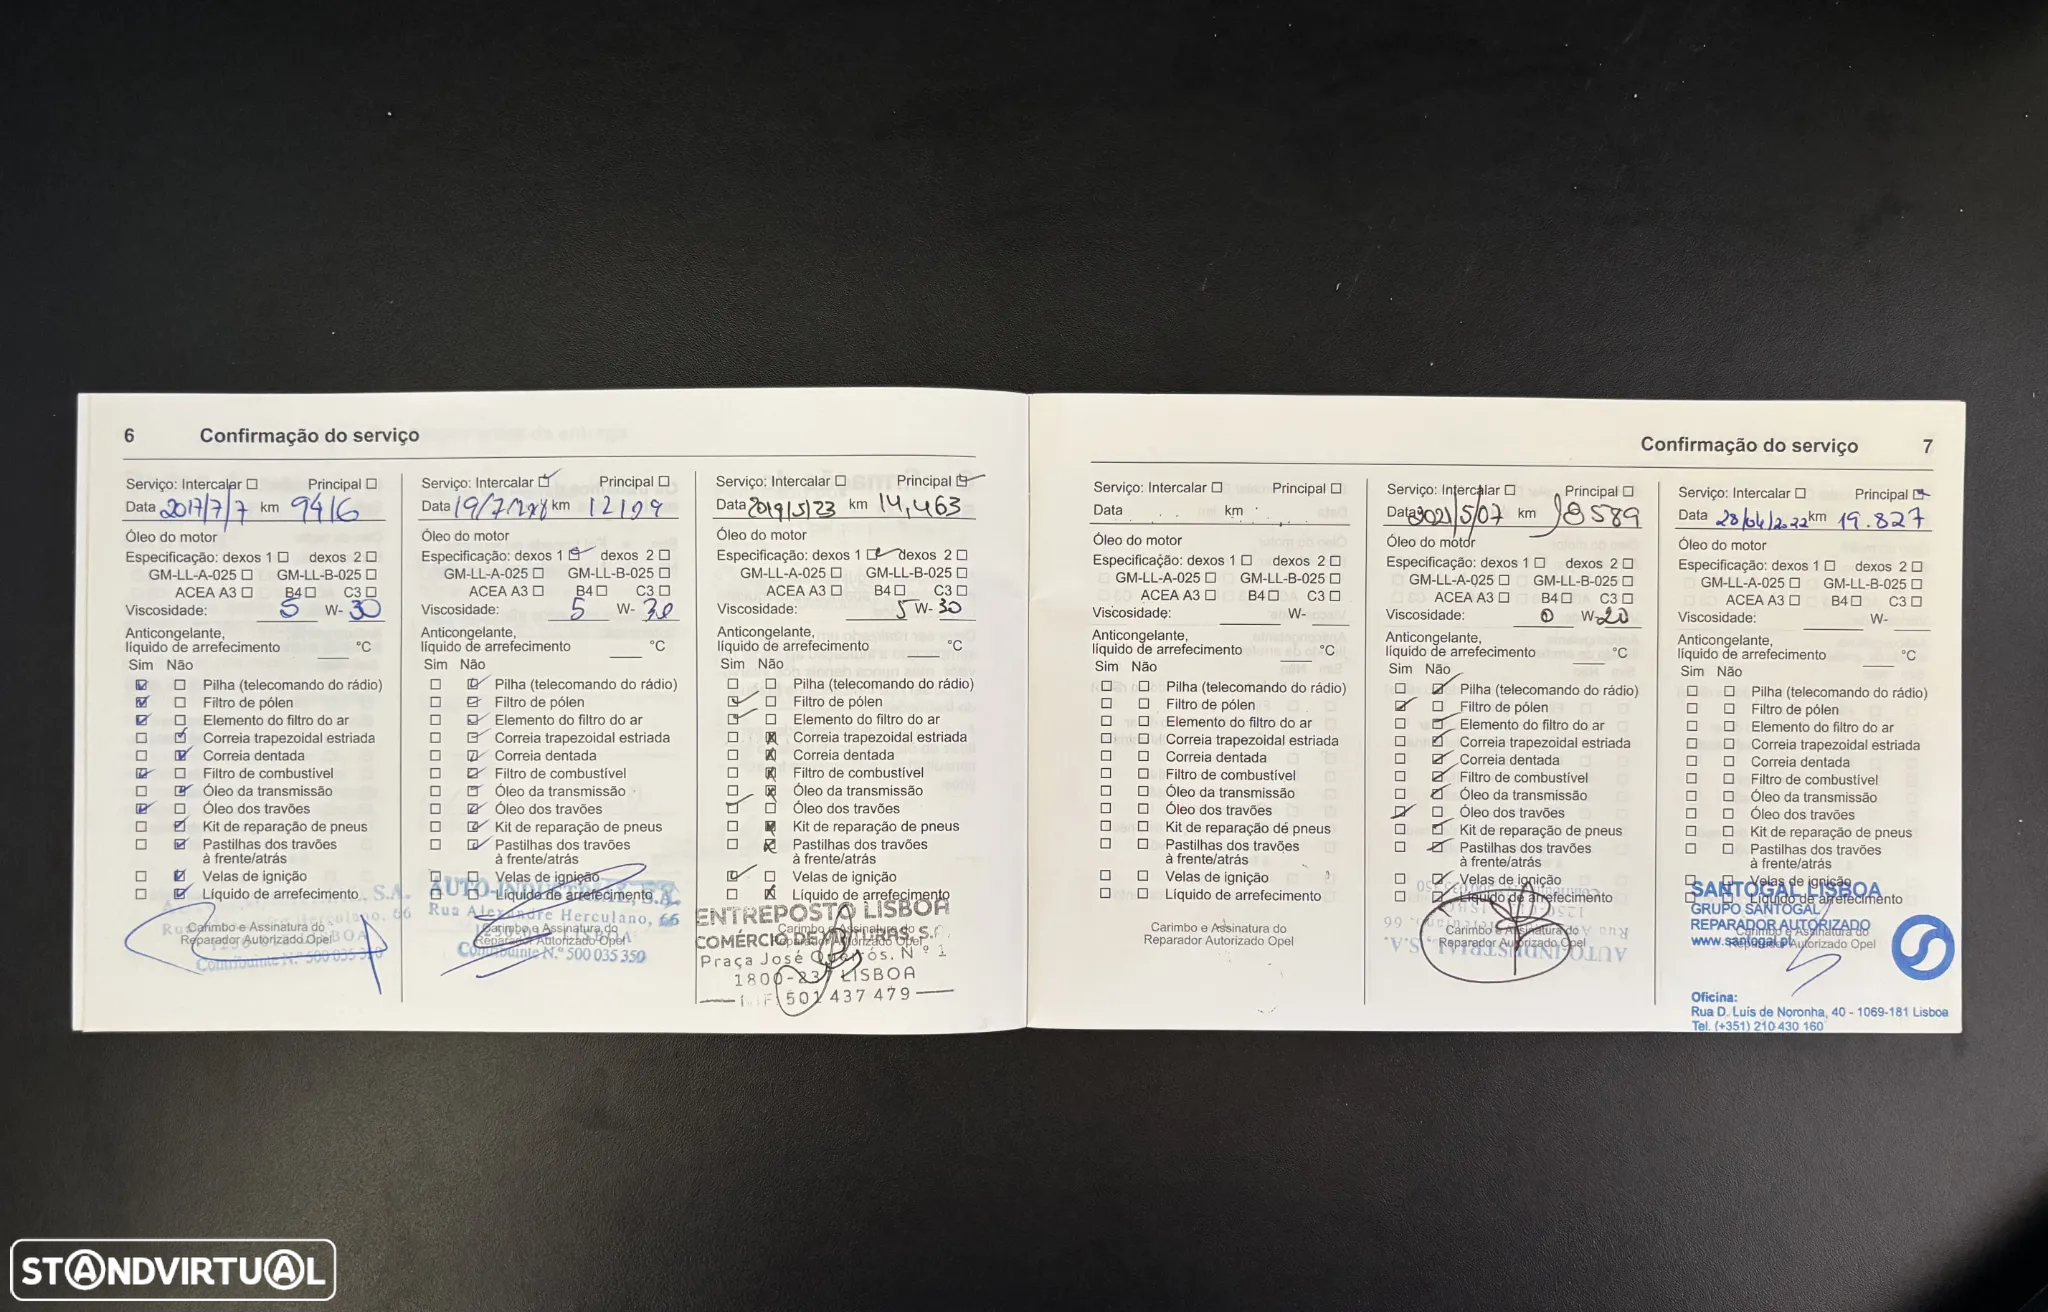 6 Confirmação do serviço
Serviço: Intercalar Principal
Data 2017/7/7 km 9416
Óleo do motor
Especificação: dexos 1 dexos 2
GM-LL-A-025 GM-LL-B-025
ACEA A3 B4 C3
Viscosidade: 5 W- 30
Anticongelante,
líquido de arrefecimento °C
Sim Não
Pilha (telecomando do rádio)
Filtro de pólen
Elemento do filtro do ar
Correia trapezoidal estriada
Correia dentada
Filtro de combustível
Óleo da transmissão
Óleo dos travões
Kit de reparação de pneus
Pastilhas dos travões
à frente/atrás
Velas de ignição
Líquido de arrefecimento
Carimbo e Assinatura do
Reparador Autorizado Opel
Contribuinte N.º 500 035 350
Serviço: Intercalar Principal
Data 19/7/2018 km 12109
Óleo do motor
Especificação: dexos 1 dexos 2
GM-LL-A-025 GM-LL-B-025
ACEA A3 B4 C3
Viscosidade: 5 W- 30
Anticongelante,
líquido de arrefecimento °C
Sim Não
Pilha (telecomando do rádio)
Filtro de pólen
Elemento do filtro do ar
Correia trapezoidal estriada
Correia dentada
Filtro de combustível
Óleo da transmissão
Óleo dos travões
Kit de reparação de pneus
Pastilhas dos travões
à frente/atrás
Velas de ignição
AUTO-INDUSTRIAL, S.A.
Líquido de arrefecimento
Rua Alexandre Herculano, 66
Carimbo e Assinatura do
LISBOA
Reparador Autorizado Opel
Contribuinte N.º 500 035 350
Serviço: Intercalar Principal
Data 2019/5/23 km 14,463
Óleo do motor
Especificação: dexos 1 dexos 2
GM-LL-A-025 GM-LL-B-025
ACEA A3 B4 C3
Viscosidade: 5 W- 30
Anticongelante,
líquido de arrefecimento °C
Sim Não
Pilha (telecomando do rádio)
Filtro de pólen
Elemento do filtro do ar
Correia trapezoidal estriada
Correia dentada
Filtro de combustível
Óleo da transmissão
Óleo dos travões
Kit de reparação de pneus
Pastilhas dos travões
à frente/atrás
Velas de ignição
Líquido de arrefecimento
ENTREPOSTO LISBOA
Carimbo e Assinatura do
COMÉRCIO DE VIATURAS, S.
Reparador Autorizado Opel
Praça José Queirós, N º 1
1800-237 LISBOA
501 437 479
Confirmação do serviço 7
Serviço: Intercalar Principal
Data km
Óleo do motor
Especificação: dexos 1 dexos 2
GM-LL-A-025 GM-LL-B-025
ACEA A3 B4 C3
Viscosidade: W-
Anticongelante,
líquido de arrefecimento °C
Sim Não
Pilha (telecomando do rádio)
Filtro de pólen
Elemento do filtro do ar
Correia trapezoidal estriada
Correia dentada
Filtro de combustível
Óleo da transmissão
Óleo dos travões
Kit de reparação de pneus
Pastilhas dos travões
à frente/atrás
Velas de ignição
Líquido de arrefecimento
Carimbo e Assinatura do
Reparador Autorizado Opel
Serviço: Intercalar Principal
Data 2021/5/07 km 18589
Óleo do motor
Especificação: dexos 1 dexos 2
GM-LL-A-025 GM-LL-B-025
ACEA A3 B4 C3
Viscosidade: 0 W- 20
Anticongelante,
líquido de arrefecimento °C
Sim Não
Pilha (telecomando do rádio)
Filtro de pólen
Elemento do filtro do ar
Correia trapezoidal estriada
Correia dentada
Filtro de combustível
Óleo da transmissão
Óleo dos travões
Kit de reparação de pneus
Pastilhas dos travões
à frente/atrás
Velas de ignição
Líquido de arrefecimento
Carimbo e Assinatura do
Reparador Autorizado Opel
AUTO INDUSTRIAL, S.A.
Serviço: Intercalar Principal
Data 28/04/2022 km 19.827
Óleo do motor
Especificação: dexos 1 dexos 2
GM-LL-A-025 GM-LL-B-025
ACEA A3 B4 C3
Viscosidade: W-
Anticongelante,
líquido de arrefecimento °C
Sim Não
Pilha (telecomando do rádio)
Filtro de pólen
Elemento do filtro do ar
Correia trapezoidal estriada
Correia dentada
Filtro de combustível
Óleo da transmissão
Óleo dos travões
Kit de reparação de pneus
Pastilhas dos travões
à frente/atrás
Velas de ignição
SANTOGAL LISBOA
Líquido de arrefecimento
GRUPO SANTOGAL
REPARADOR AUTORIZADO
Carimbo e Assinatura do
www.santogal.pt
Reparador Autorizado Opel
Oficina:
Rua D. Luís de Noronha, 40 - 1069-181 Lisboa
Tel. (+351) 210 430 160
STANDVIRTUAL